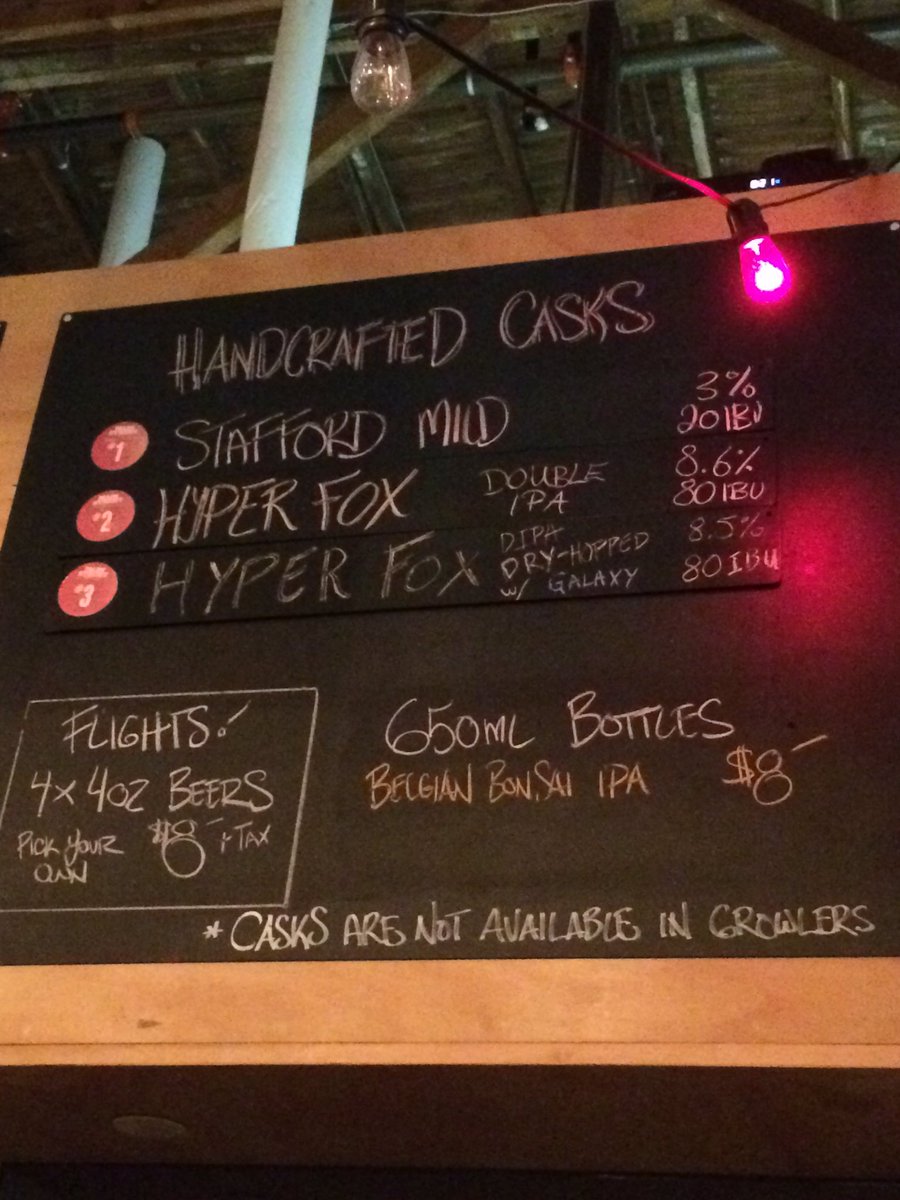 HANDCRAFTED CASKS
#1 STAFFORD MILD 3% 20 IBU
#2 HYPER FOX DOUBLE IPA 8.6% 80 IBU
#3 HYPER FOX DIPA DRY-HOPPED W/ GALAXY 8.5% 80 IBU
FLIGHTS!
4x 4OZ BEERS
PICK YOUR OWN $8- + TAX
650ML BOTTLES
BELGIAN BONSAI IPA $8-
* CASKS ARE NOT AVAILABLE IN GROWLERS